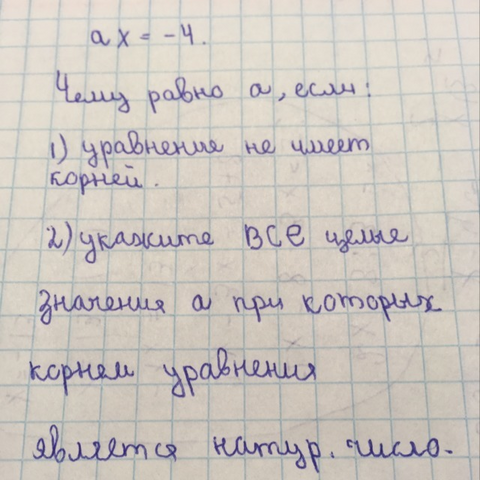 ax = -4.
Чему равно а, если:
1) уравнение не имеет
корней.
2) укажите ВСЕ целые
значения а при которых
корнем уравнения
является натур. число.